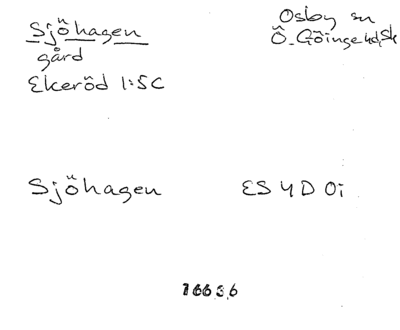 Sjöhagen
gård
Ekeröd 1:5C
Osby sn
Ö. Göinge hd, Sk
Sjöhagen
ES 4 D 0i
16636